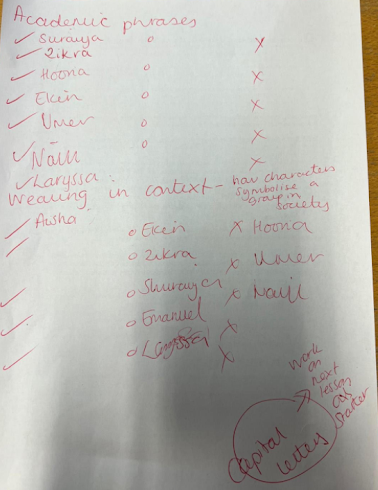 Academic phrases
✓ Suraiya o x
✓ Zikra
✓ Hoona o x
✓ Ekin o x
✓ Umer o x
✓ Nail o x
✓ Laryssa:
Weaving in context - how characters
symbolise a
group in
society
✓ Aisha o Ekin x Hoona
✓ o Zikra x Umer
✓ o Shuraiya x Nail
✓ o Emanuel x
✓ o Laryssa x
Capital
letters
work
on
next
lesson
as
starter